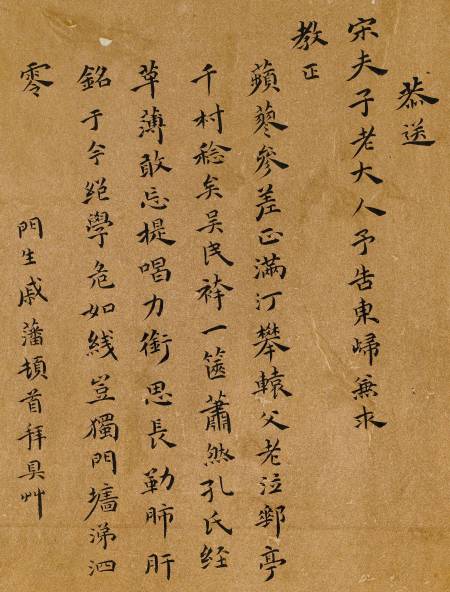 恭送
宋夫子老大人予告東歸兼求
教正
蘋蓼參差正滿汀攀轅父老泣郵亭
千村稔矣吳民袴一篋蕭然孔氏経
草薄敢忘提唱力銜思長勒肺肝
銘于今絕學危如綫豈獨門墻涕泗
零
門生戚藩頓首拜具艸